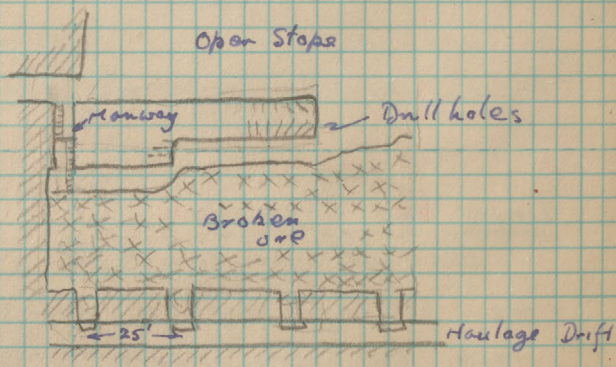 Open Stope
Manway
Drill holes
Broken
ore
25'
Haulage Drift